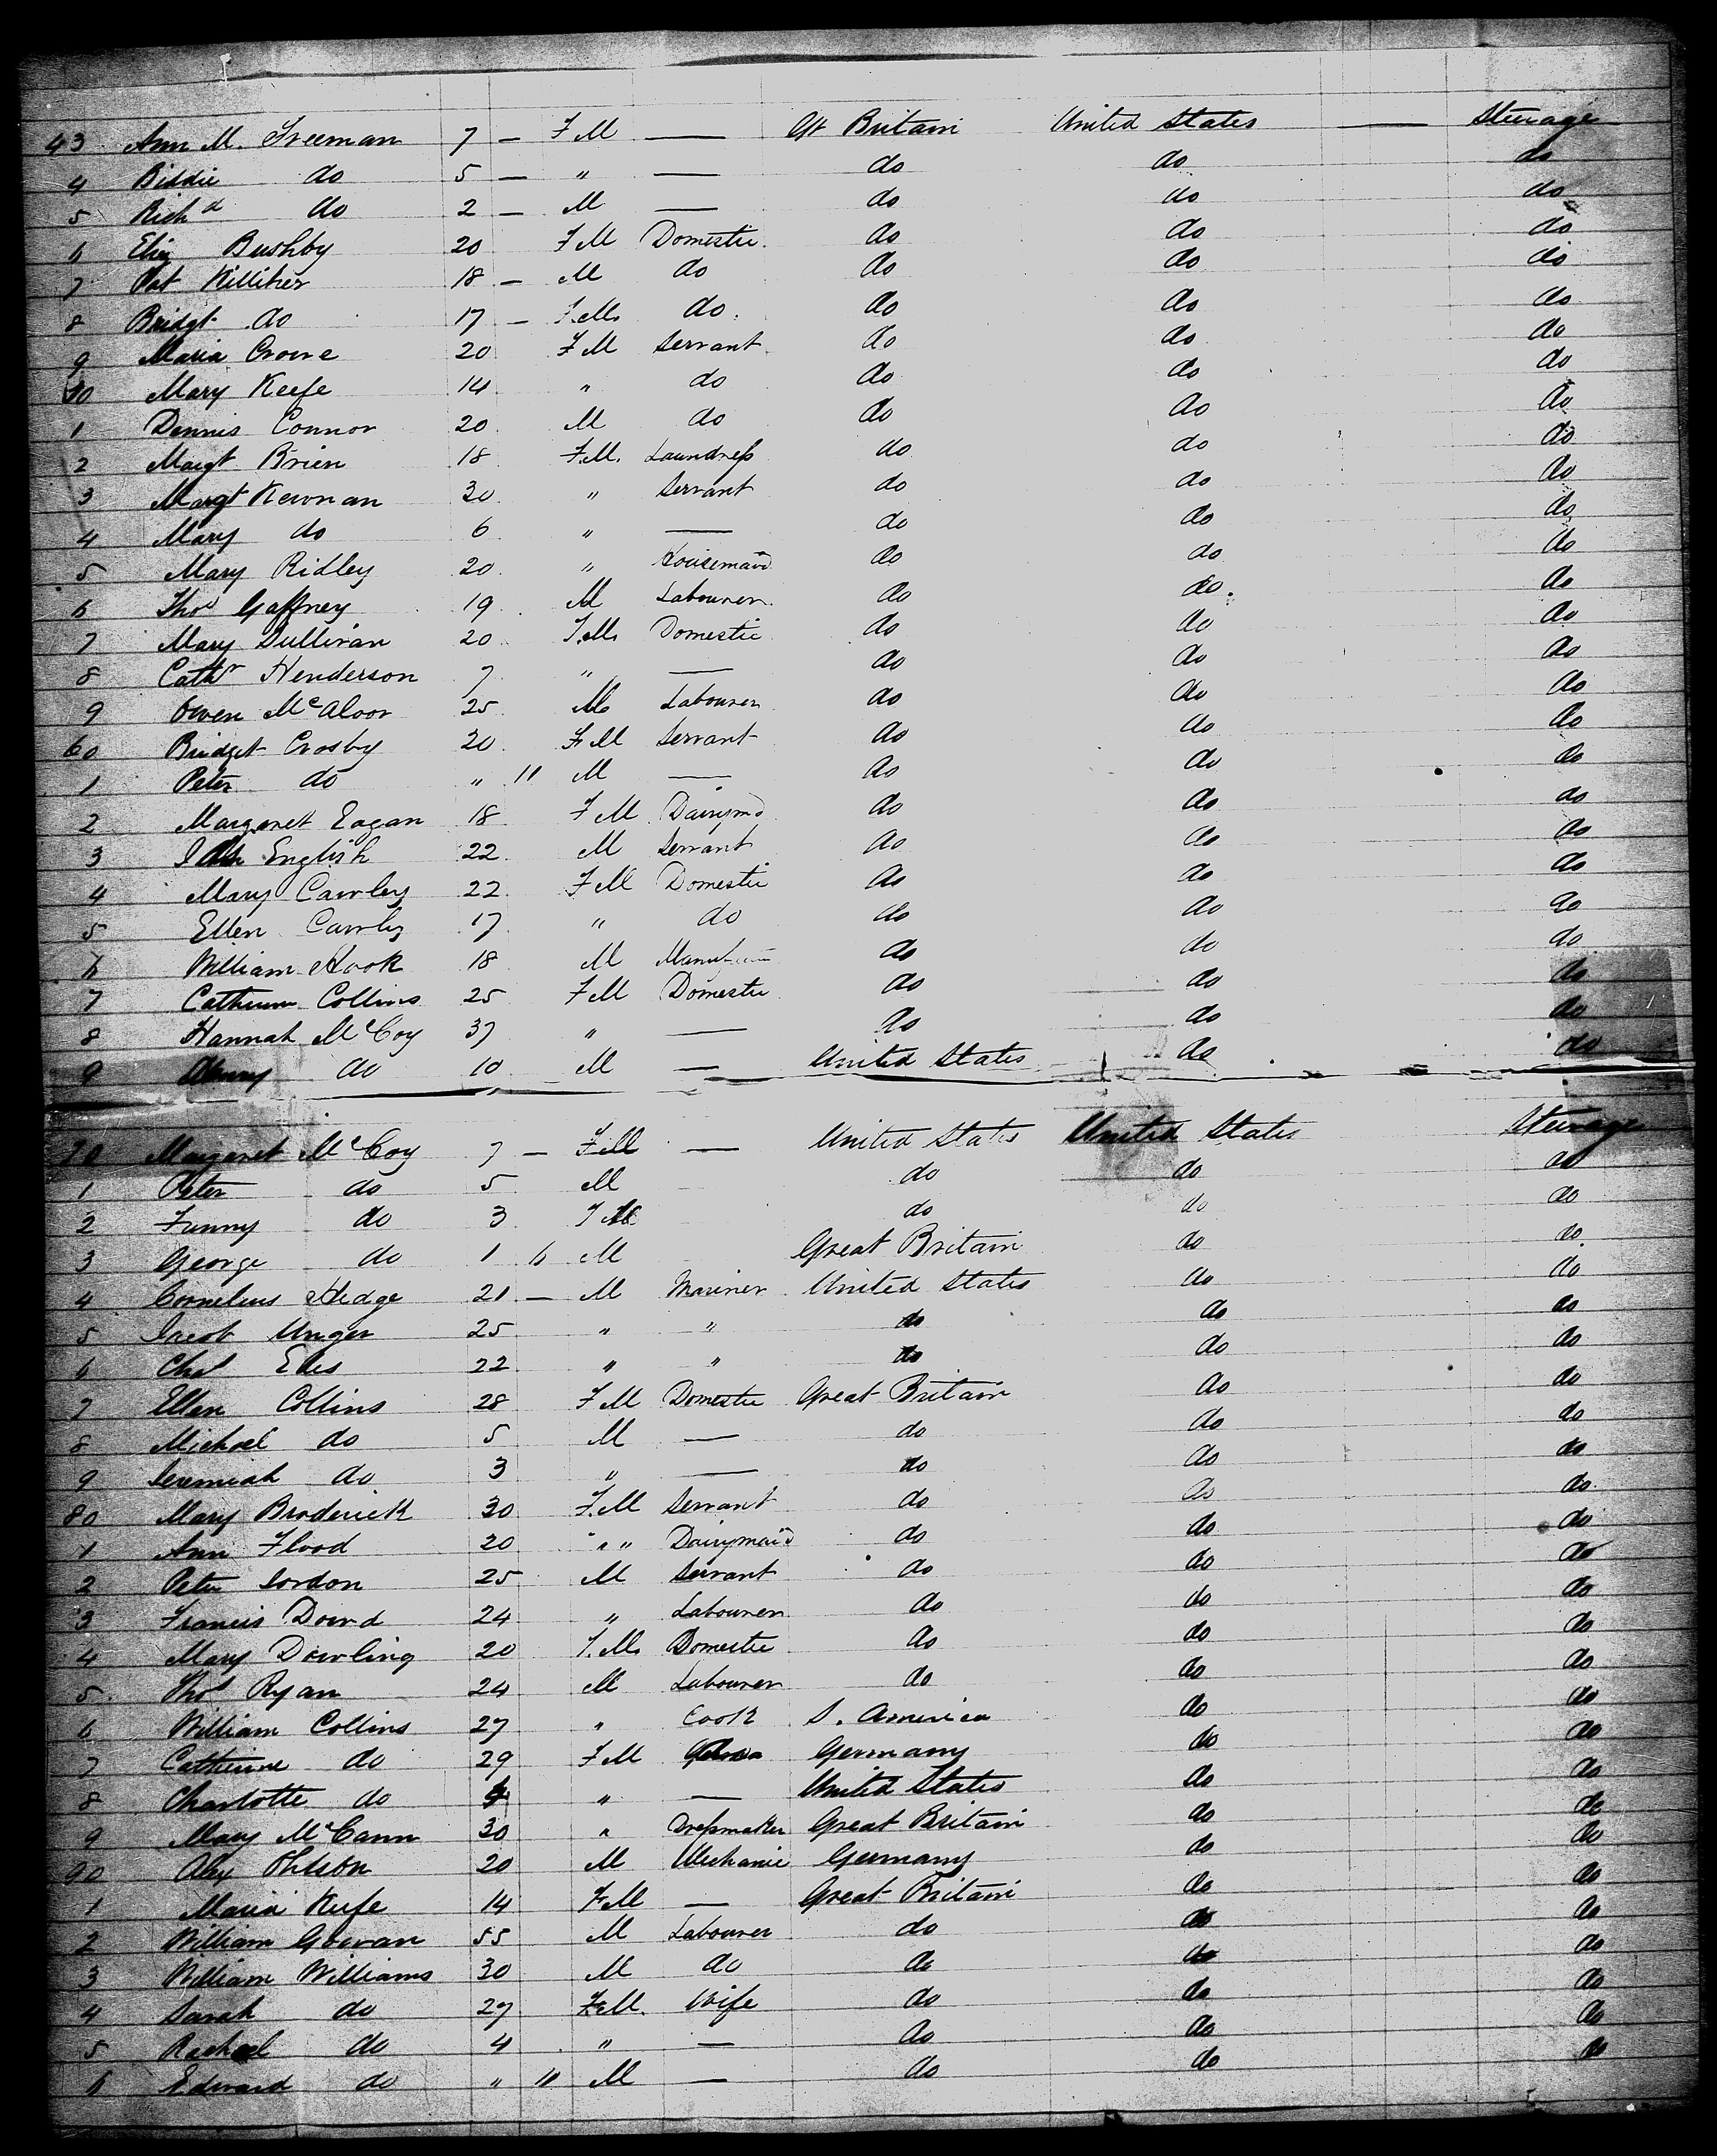 43 Ann M. Freeman 7 — F M — Gt Britain United States — Steerage
4 Biddie do 5 — " — do do do
5 Richd do 2 — M — do do do
6 Eliz Bushby 20 F M Domestic do do do
7 Pat Killiher 18 — M do do do do
8 Bridgt do 17 — F.M. do. do do do
9 Maria Crowe 20 F M Servant do do do
50 Mary Keefe 14 " do do do do
1 Dennis Connor 20 M do do do do
2 Margt Brien 18 F.M. Laundress do do do
3 Margt Kewnan 30 " Servant do do do
4 Mary do 6 " — do do do
5 Mary Ridley 20 " Housemaid do do do
6 Thos Gaffney 19 M Labourer do do. do
7 Mary Sullivan 20 F.M. Domestic do do do
8 Cathr Henderson 7 " — do do do
9 Owen McAloor 25 M Labourer do do do
60 Bridget Crosby 20 F M Servant do do do
1 Peter do " 11 M — do do do
2 Margaret Eagan 18 F M Dairymd do do do
3 English 22 M Servant do do do
4 Mary Cawley 22 F M Domestic do do do
5 Ellen Cawly 17 " do do do do
6 William Hook 18 M do do do
7 Catherine Collins 25 F M Domestic do do do
8 Hannah McCoy 37 " — do do do
9 do 10 M — United States do do
70 Margaret McCoy 7 — F.M — United States United States Steerage
1 Peter do 5 M do do do
2 Fanny do 3 F M do do do
3 George do 1 6 M Great Britain do do
4 Cornelius Hedge 21 — M Mariner United States do do
5 Jacob Unger 25 " " do do do
6 Chas Edes 22 " " do do do
7 Ellen Collins 28 F M Domestic Great Britain do do
8 Michael do 5 M — do do do
9 Jeremiah do 3 " — do do do
80 Mary Broderick 30 F.M Servant do do do
1 Ann Flood 20 " " Dairymaid do do do
2 Peter Gordon 25 M Servant do do do
3 Francis Dowd 24 " Labourer do do do
4 Mary Dowling 20 F.M. Domestic do do do
5 Thos Ryan 24 M Labourer do do do
6 William Collins 27 " Cook S. America do do
7 Catherine do 29 F M Germany do do
8 Charlotte do " — United States do do
9 Mary McCann 30 " Dressmaker Great Britain do do
90 Alex 20 M Mechanic Germany do do
1 Maria Keefe 14 F M — Great Britain do do
2 William Gowan 55 M Labourer do do do
3 William Williams 30 M do do do do
4 Sarah do 27 F.M. Wife do do do
5 Rachael do 4 " — do do do
6 Edward do " 10 M — do do do